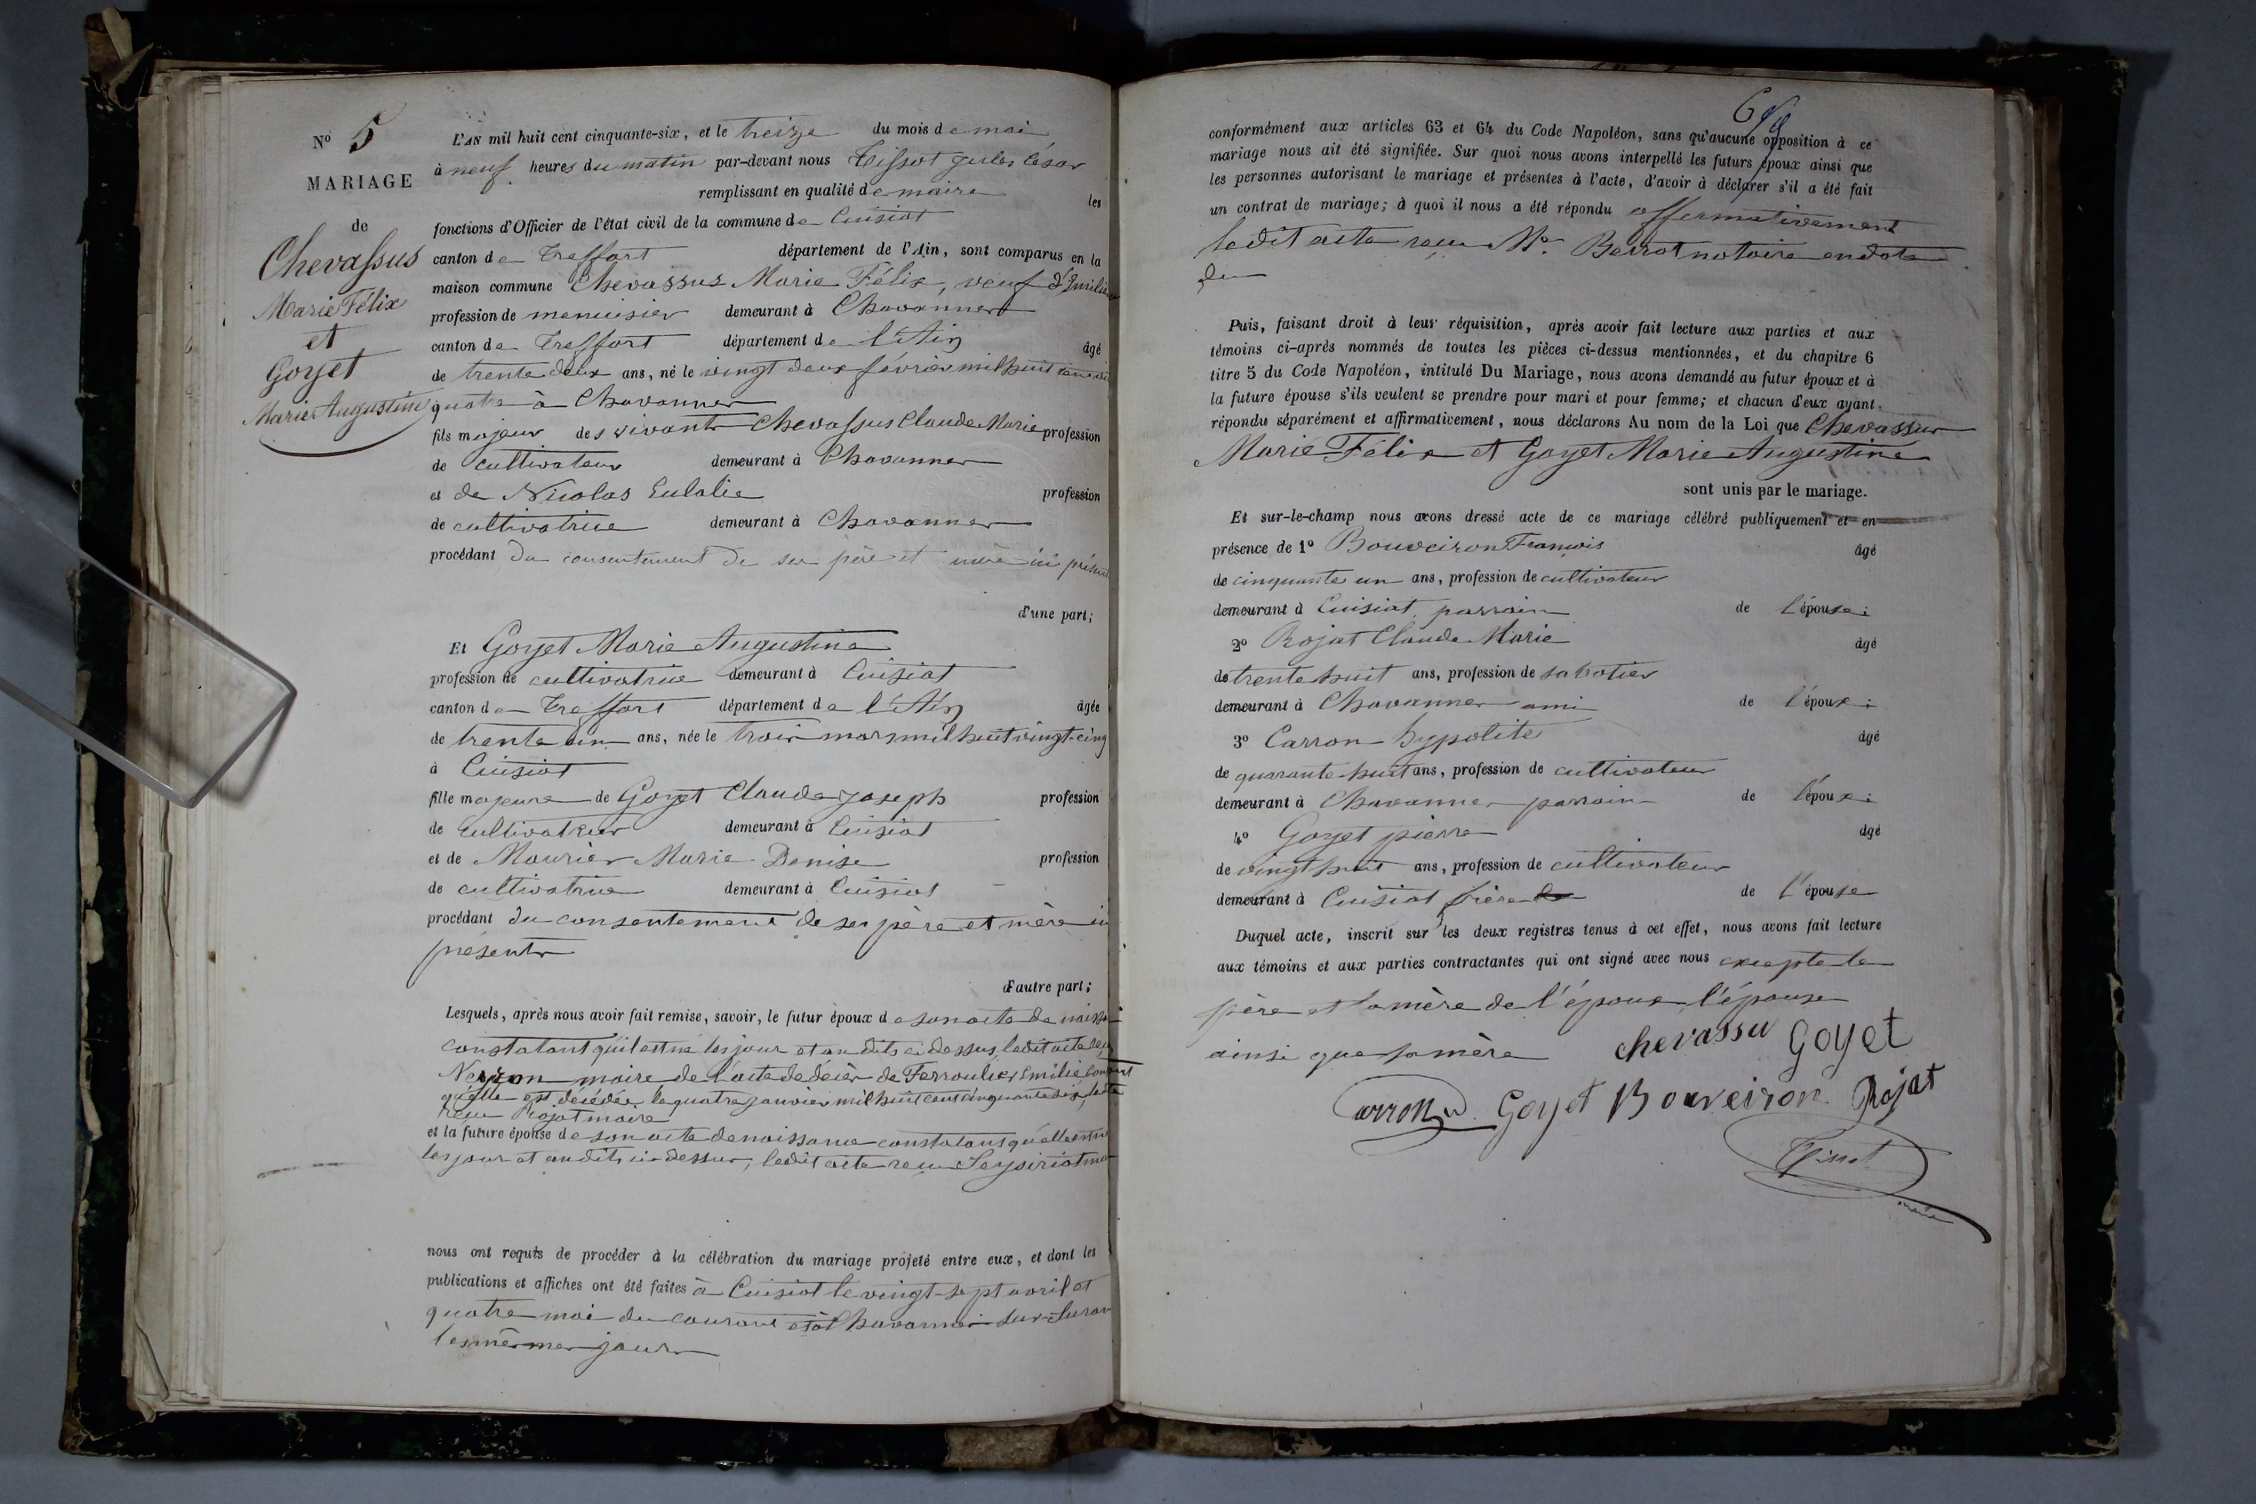 N° 5
MARIAGE
de
Chevassus
Marie Félix
et
Goyet
Marie Augustine
L'AN mil huit cent cinquante-six, et le treize du mois de mai
à neuf heures du matin par-devant nous Tissot jules César
remplissant en qualité de maire les
fonctions d'Officier de l'état civil de la commune de Cuisiat
canton de Treffort département de l'Ain, sont comparus en la
maison commune Chevassus Marie Félix, veuf d'Emilie
profession de menuisier demeurant à Chavannes
canton de Treffort département de l'Ain âgé
de trente deux ans, né le vingt deux février mil huit cent vingt
quatre à Chavannes
fils majeur des vivants Chevassus Claude Marie profession
de cultivateur demeurant à Chavannes
et de Nicolas Eulalie profession
de cultivatrice demeurant à Chavannes
procédant du consentement de ses père et mère ici présents
d'une part;
Et Goyet Marie Augustine
profession de cultivatrice demeurant à Cuisiat
canton de Treffort département de l'Ain âgée
de trente un ans, née le trois mars mil huit vingt-cinq
à Cuisiat
fille majeure de Goyet Claude Joseph profession
de cultivateur demeurant à Cuisiat
et de Maurier Marie Denise profession
de cultivatrice demeurant à Cuisiat
procédant du consentement de ses père et mère ici
présents
d'autre part;
Lesquels, après nous avoir fait remise, savoir, le futur époux de son acte de naissance
constatant qu'il est né les jour et an dits ci dessus, ledit acte reçu
maire de l'acte de décès de Ferroulier Emilie constatant
qu'elle est décédée le quatre janvier mil huit cent cinquante six, ledit acte
reçu Rojat maire
et la future épouse de son acte de naissance constatant qu'elle est née
les jour et an dits ci-dessus, ledit acte reçu Seysiriat maire
nous ont requis de procéder à la célébration du mariage projeté entre eux, et dont les
publications et affiches ont été faites à Cuisiat le vingt-sept avril et
quatre mai du courant et à Chavannes-sur-Suran
les mêmes jours
conformément aux articles 63 et 64 du Code Napoléon, sans qu'aucune opposition à ce
mariage nous ait été signifiée. Sur quoi nous avons interpellé les futurs époux ainsi que
les personnes autorisant le mariage et présentes à l'acte, d'avoir à déclarer s'il a été fait
un contrat de mariage; à quoi il nous a été répondu affirmativement
ledit acte reçu Me Berrot notaire en date
du
Puis, faisant droit à leur réquisition, après avoir fait lecture aux parties et aux
témoins ci-après nommés de toutes les pièces ci-dessus mentionnées, et du chapitre 6
titre 5 du Code Napoléon, intitulé Du Mariage, nous avons demandé au futur époux et à
la future épouse s'ils veulent se prendre pour mari et pour femme; et chacun d'eux ayant
répondu séparément et affirmativement, nous déclarons Au nom de la Loi que Chevassus
Marie Félix et Goyet Marie Augustine
sont unis par le mariage.
Et sur-le-champ nous avons dressé acte de ce mariage célébré publiquement et en
présence de 1° Bouveiron François âgé
de cinquante un ans, profession de cultivateur
demeurant à Cuisiat parrain de l'épouse;
2° Rojat Claude Marie âgé
de trente huit ans, profession de sabotier
demeurant à Chavannes ami de l'époux;
3° Carron hypolite âgé
de quarante-huit ans, profession de cultivateur
demeurant à Chavannes parrain de l'époux;
4° Goyet pierre âgé
de vingt huit ans, profession de cultivateur
demeurant à Cuisiat frère de l'épouse
Duquel acte, inscrit sur les deux registres tenus à cet effet, nous avons fait lecture
aux témoins et aux parties contractantes qui ont signé avec nous excepté le
père et la mère de l'époux l'épouse
ainsi que sa mère chevassu Goyet
Carron Goyet Bouveiron Rojat
Tissot
maire